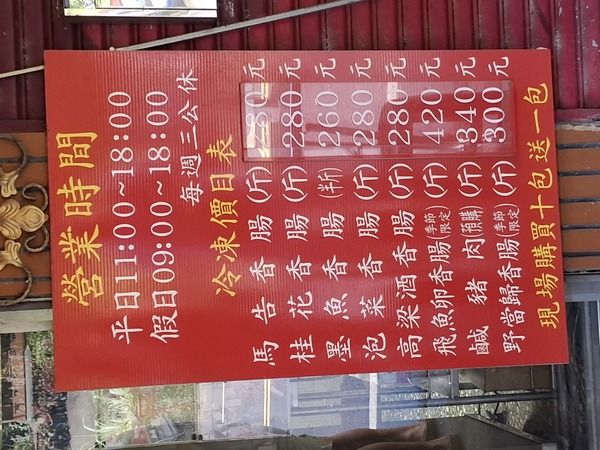 營業時間
平日11:00~18:00
假日09:00~18:00
每週三公休
冷凍價目表
馬告香腸(斤)280元
桂花香腸(斤)280元
墨魚香腸(半斤)260元
泡菜香腸(斤)280元
高梁酒香腸(斤)280元
飛魚卵香腸(季節限定)(斤)420元
鹹豬肉(預購)(斤)340元
野當歸香腸(季節限定)(斤)300元
現場購買十包送一包